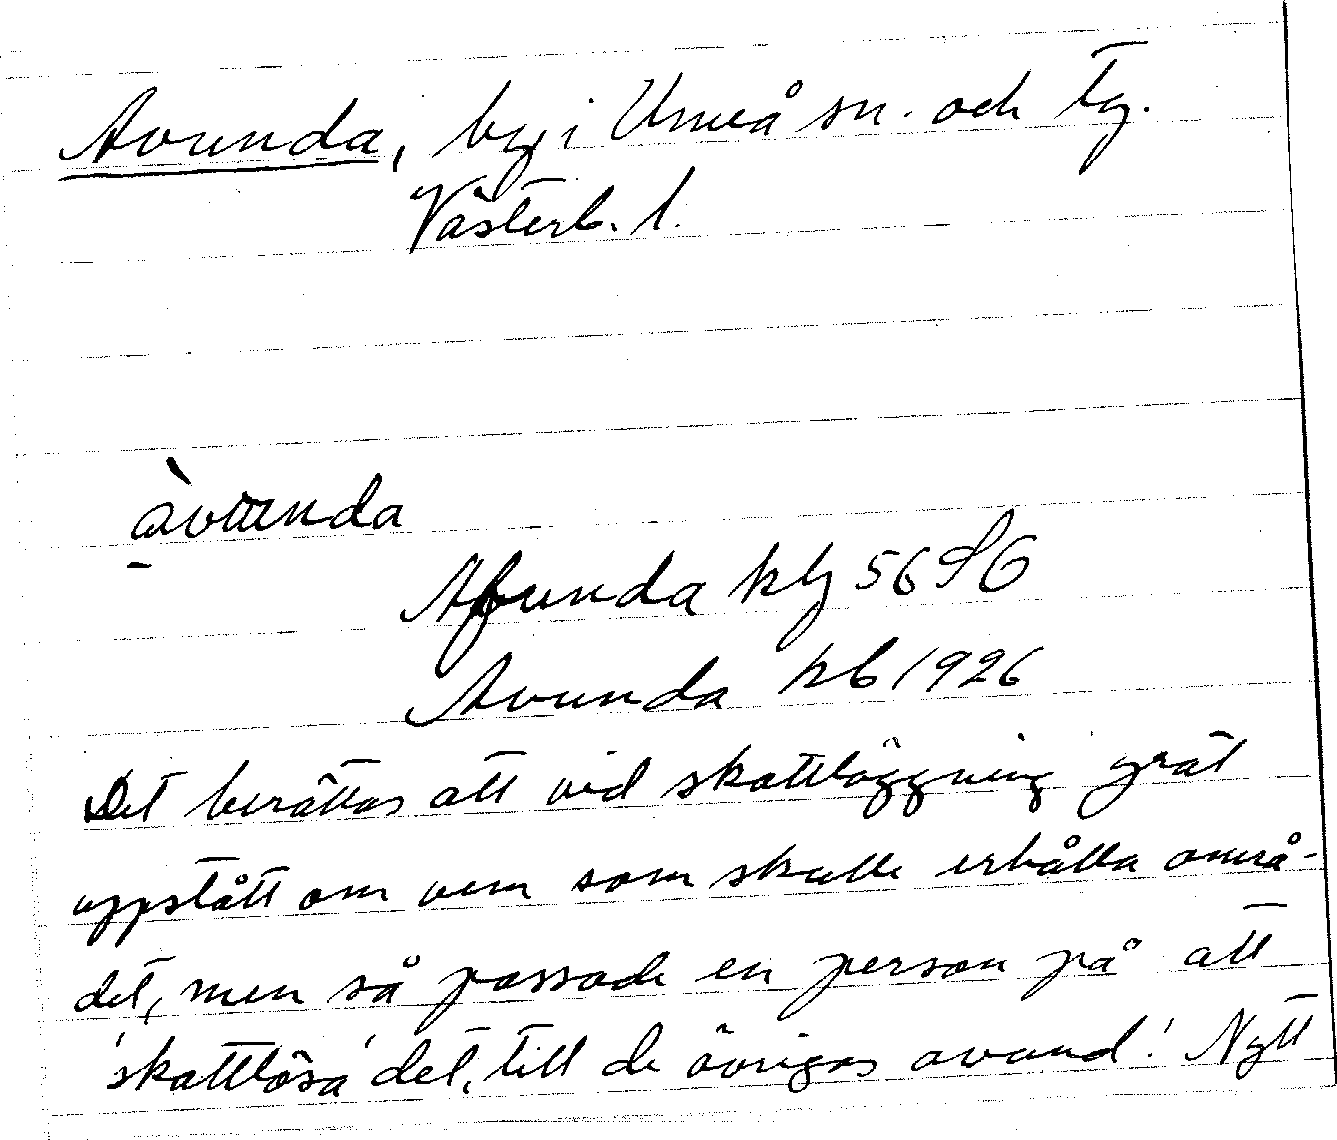 Avunda, by i Umeå sn. och tg.
Västerb. l.
àvunda
Afunda klg 56 SG
Avunda kb 1926
Det berättas att vid skattläggning grät
uppstått om vem som skulle erhålla områ-
det, men så passade en person på att
'skattlösa' det, till de övrigas avund! Nytt